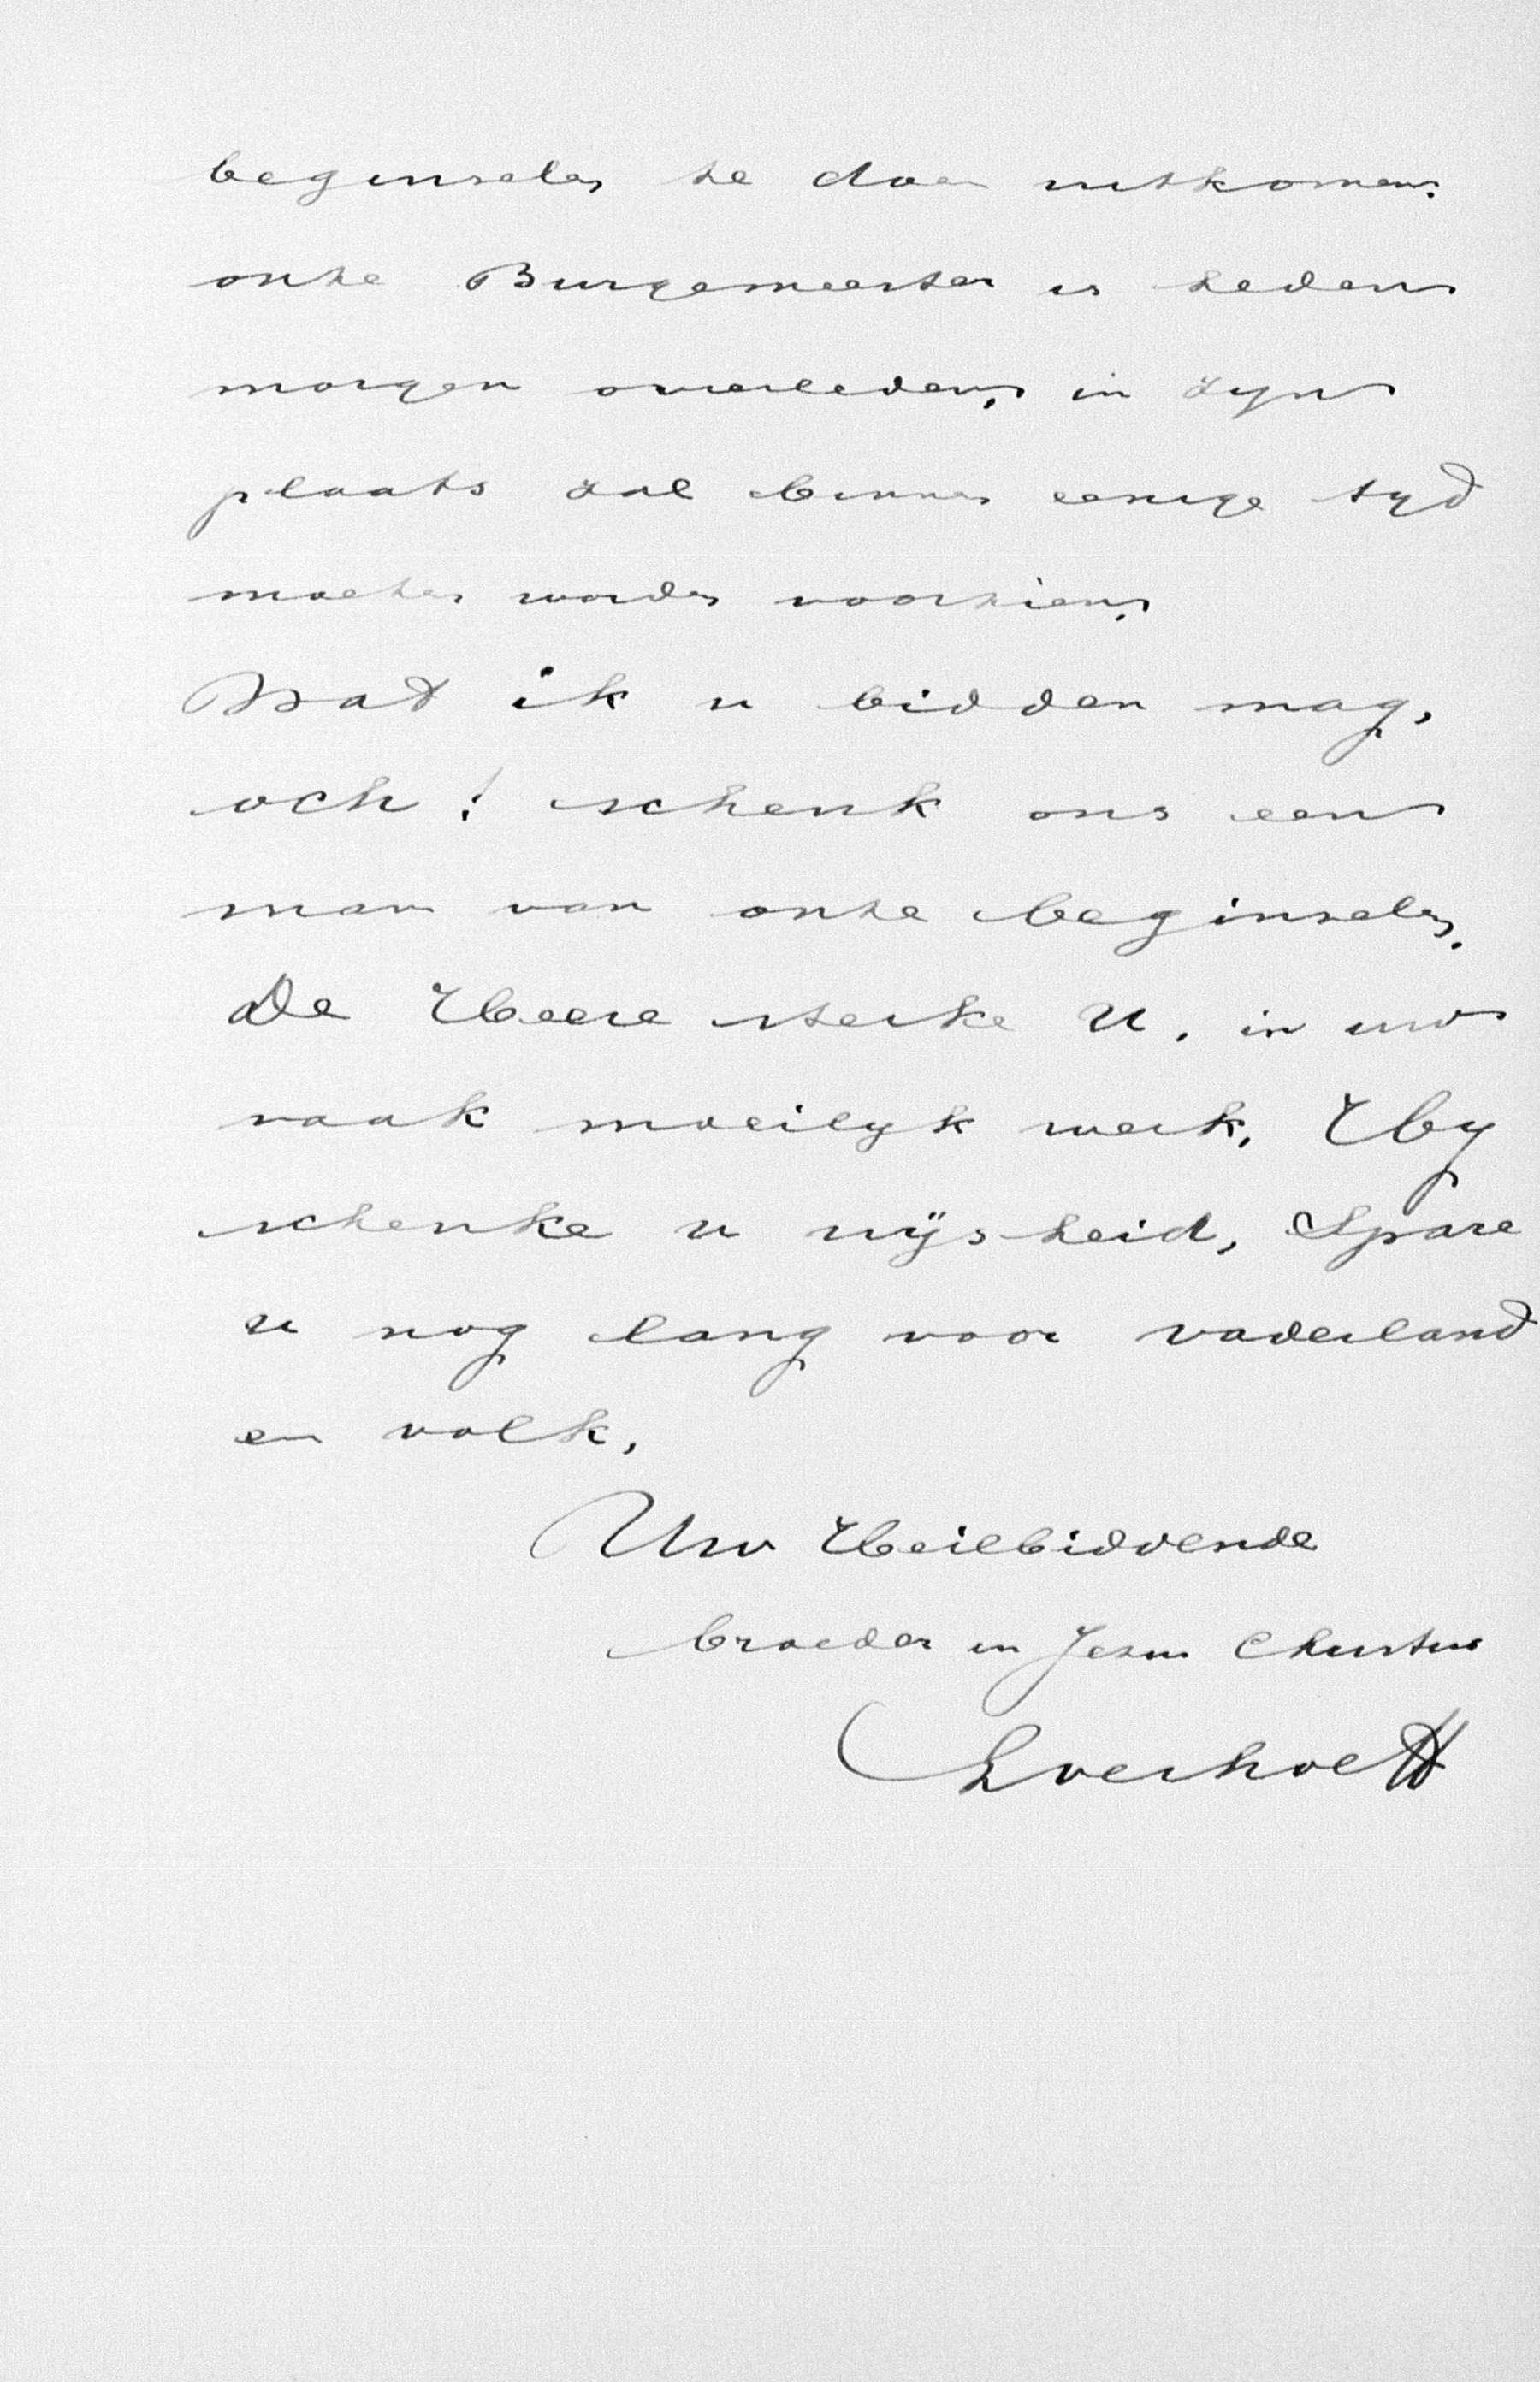 beginselen te doen uitkomen.
onze Burgemeester is heden
morgen overleden, in zyn
plaats zal binnen eenige tyd
moeten worden voorzien,
Wat ik u bidden mag,
och! schenk ons een
man van onze beginselen.
De Heere sterke U, in uw
vaak moeilyk werk, Hy
schenke u wijsheid, Spare
u nog lang voor vaderland
en volk,
Uw Heilbiddende
broeder in Jezus Christus
LVerhoeff